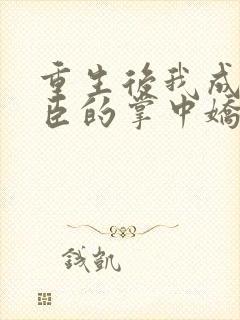 重生後我成
臣的掌中嬌
钱凯